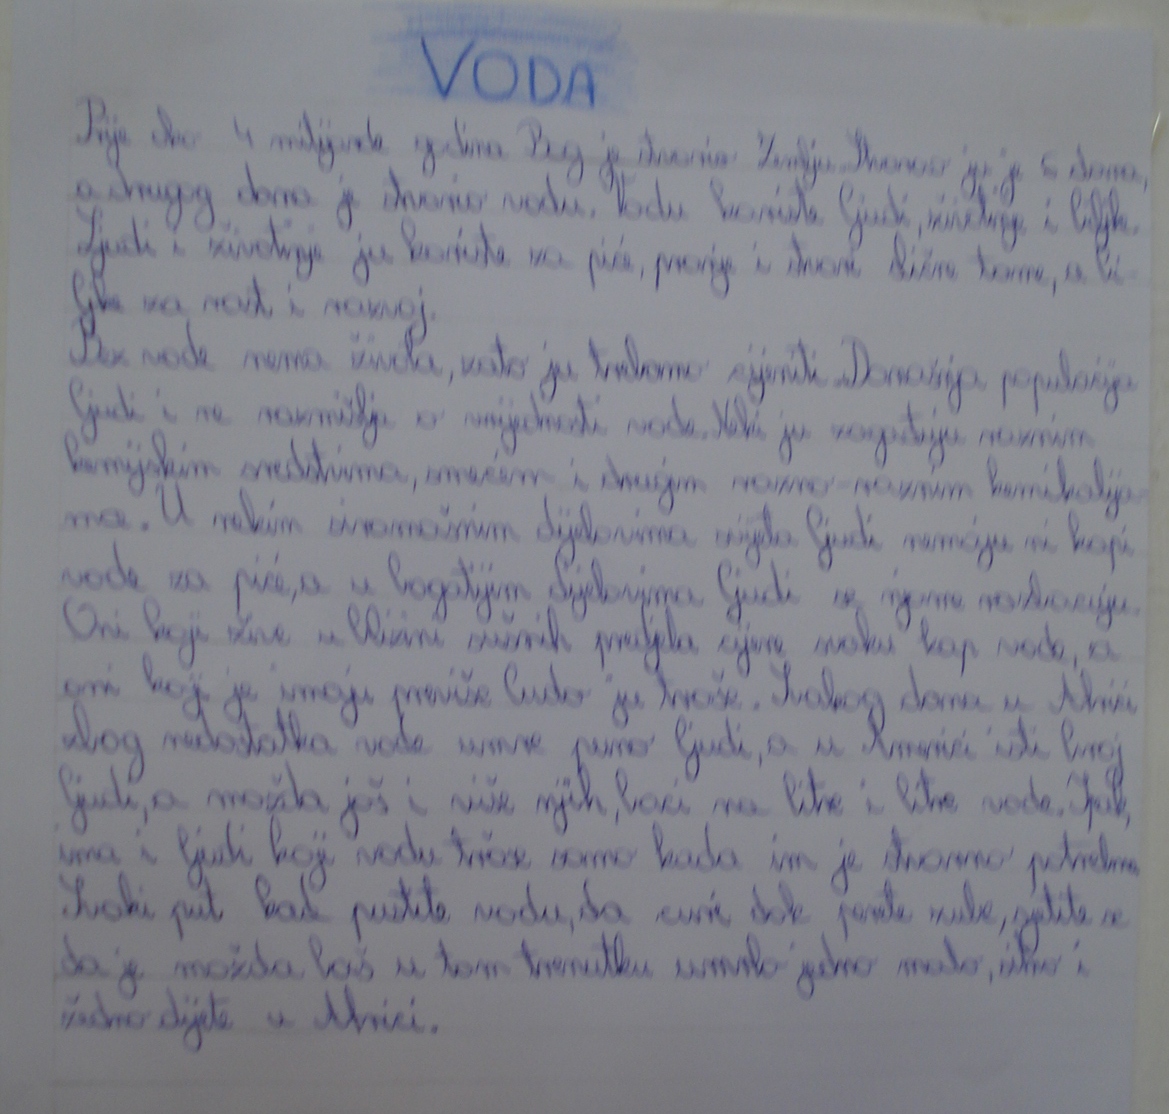 VODA
Prije oko 4 milijarde godina Bog je stvorio Zemlju. Stvarao ju je 6 dana,
a drugog dana je stvorio vodu. Vodu koriste ljudi, životinje i biljke.
Ljudi i životinje ju koriste za piće, pranje i stvari slične tome, a bi-
ljke za rast i razvoj.
Bez vode nema života, zato ju trebamo cijeniti. Današnja populacija
ljudi i ne razmišlja o vrijednosti vode. Neki ju zagađuju raznim
kemijskim sredstvima, smećem i drugim razno-raznim kemikalija-
ma. U nekim siromašnim dijelovima svijeta ljudi nemaju ni kapi
vode za piće, a u bogatijim dijelovima ljudi se njome razbacuju.
Oni koji žive u blizini sušnih predjela cijene svaku kap vode, a
oni koji je imaju previše ludo ju troše. Svakog dana u Africi
zbog nedostatka vode umre puno ljudi, a u Americi isti broj
ljudi, a možda još i više njih, baci na litre i litre vode. Ipak,
ima i ljudi koji vodu troše samo kada im je stvarno potrebna.
Svaki put kad pustite vodu, da curi dok perete zube, sjetite se
da je možda baš u tom trenutku umrlo jedno malo, sitno i
žedno dijete u Africi.